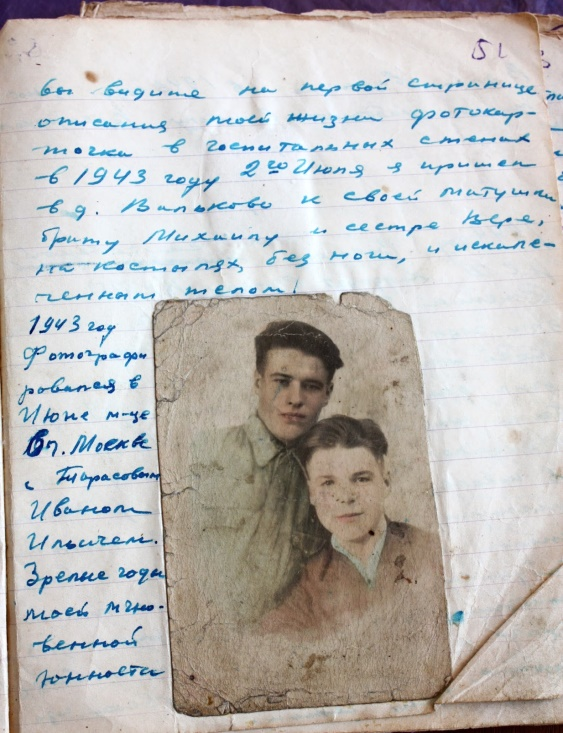 51
вы видите на первой странице
описания моей жизни фотокар-
точка в госпитальных стенах
в 1943 году 2го Июля я пришел
в д. Вальково к своей матушки,
брату Михаилу и сестре Вере,
на костылях, без ноги, и искале-
ченным телом!
1943 год
Фотографи
ровался в
Июне м-це
В г. Москве
с Тарасовым
Иваном
Ильичем.
Зрелые годы
моей мгно-
венной
юности